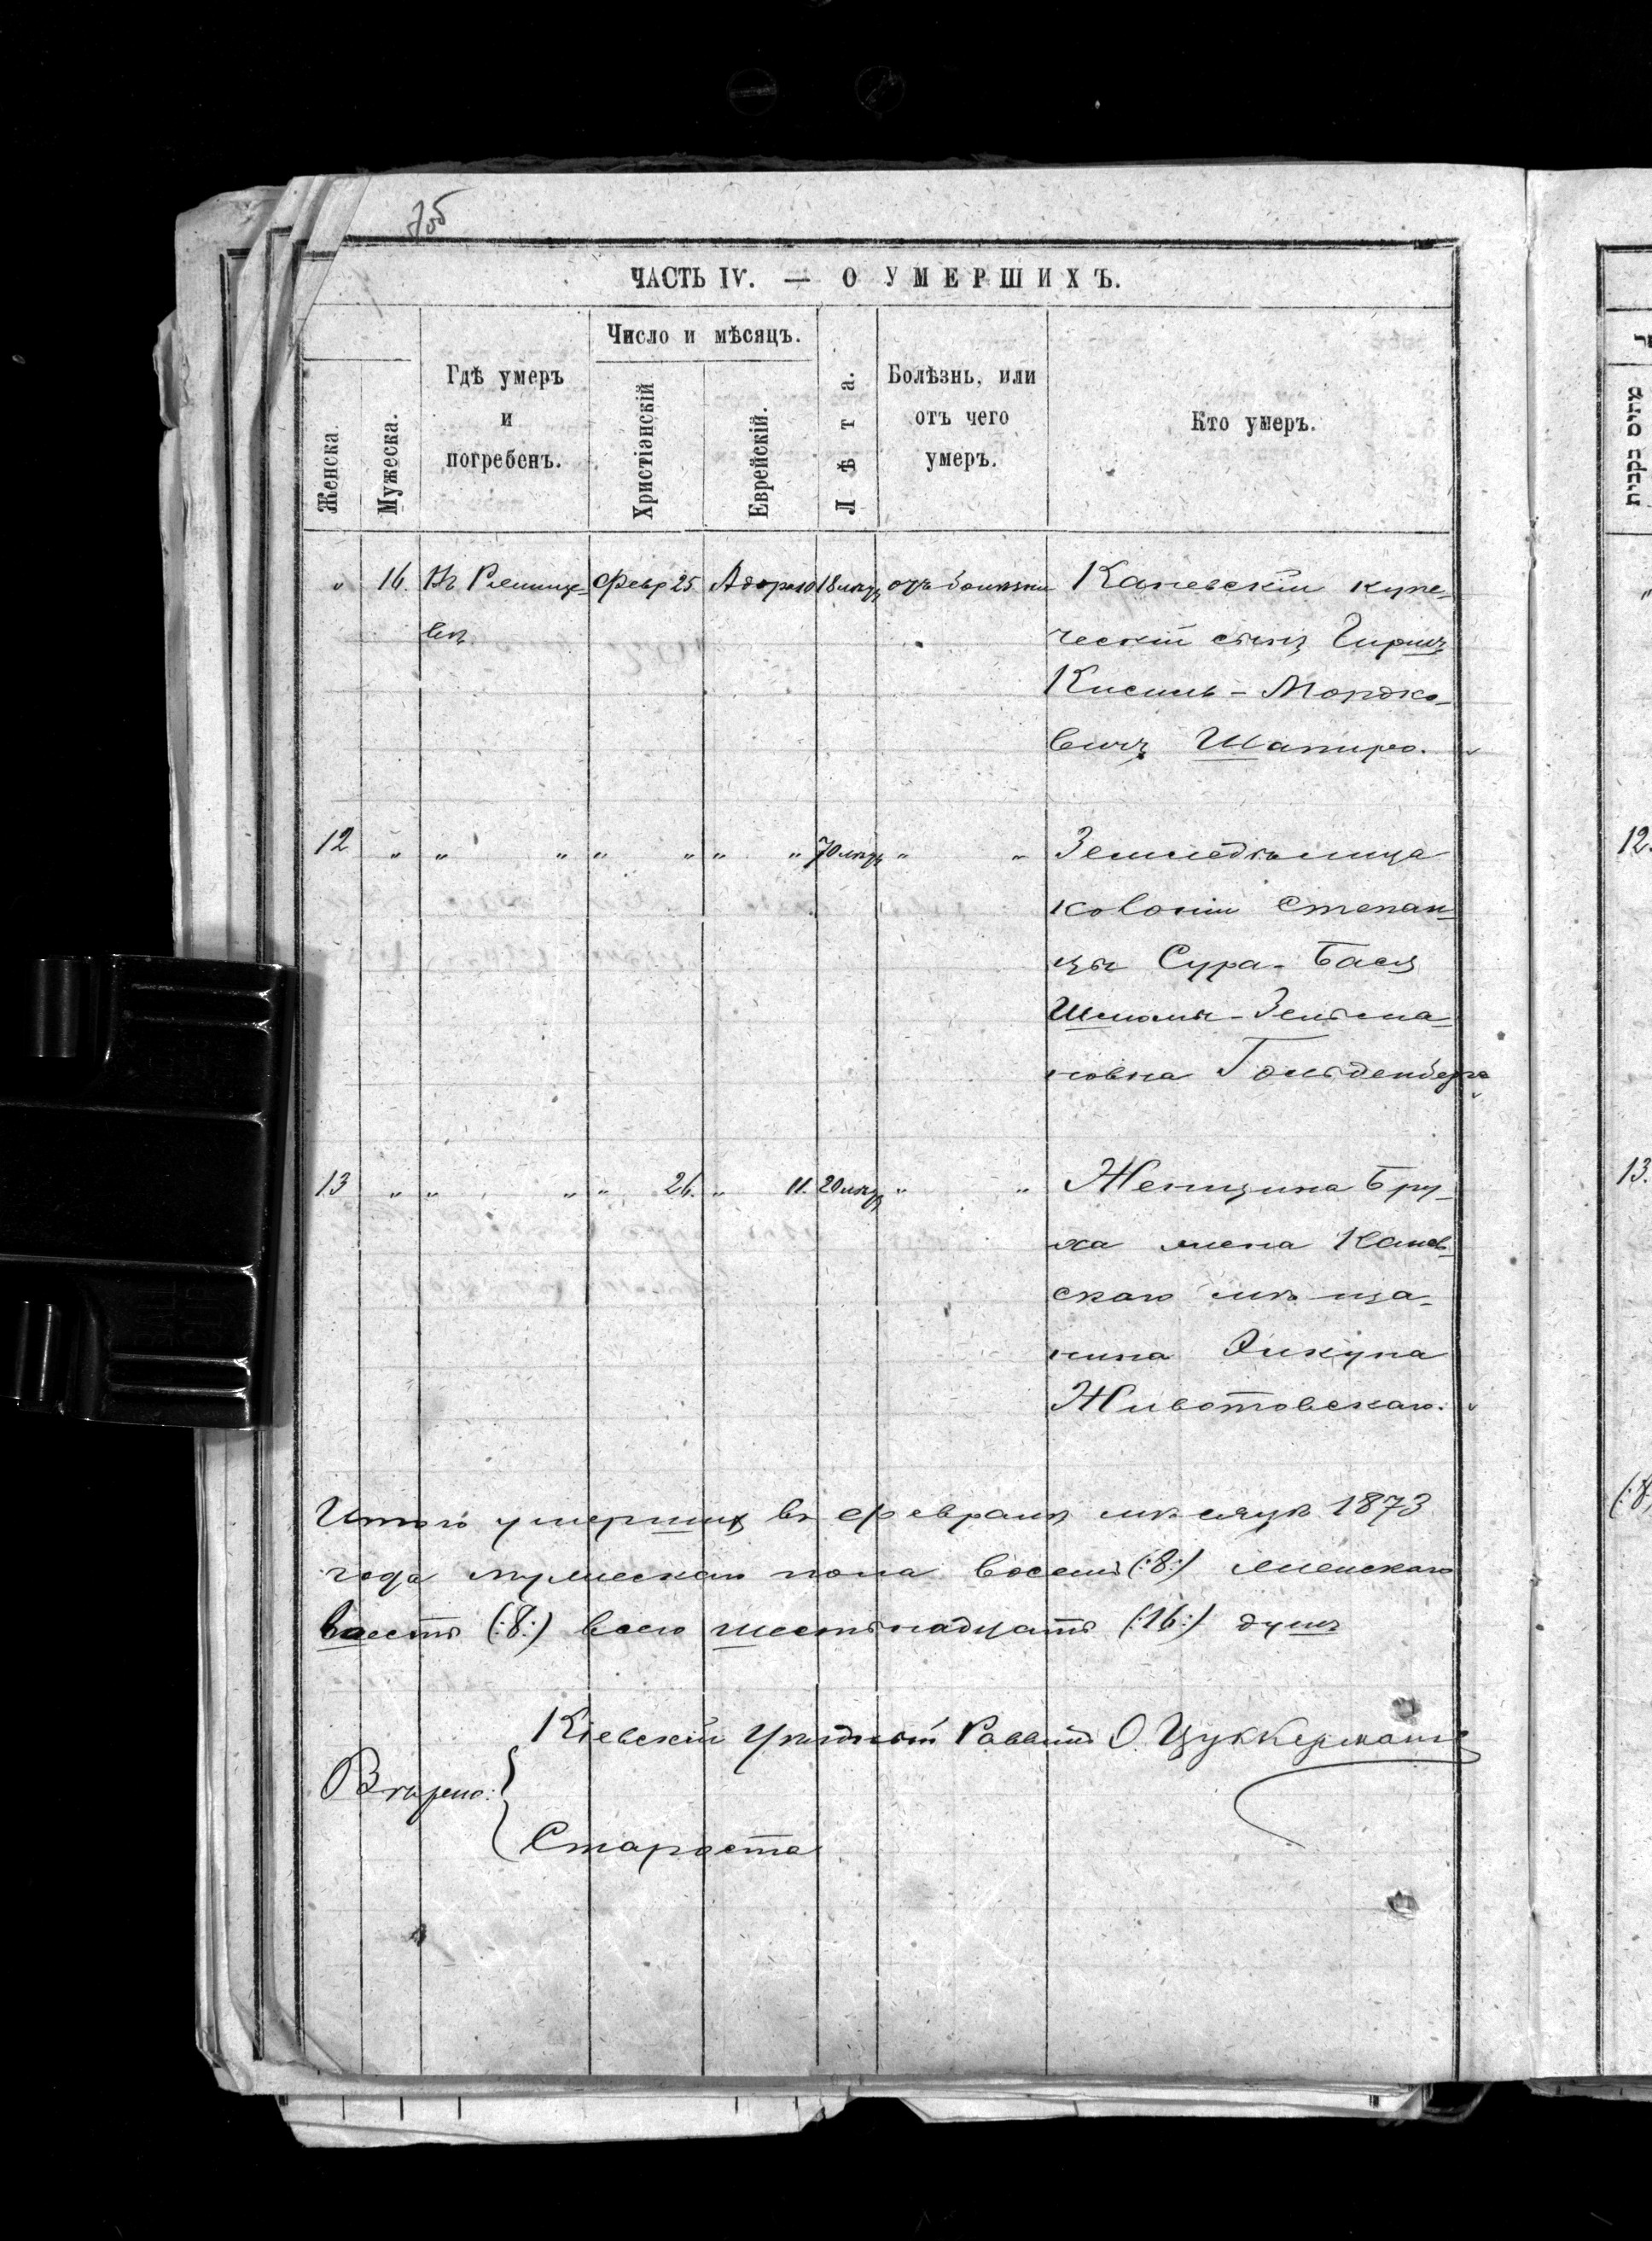 7об
ЧАСТЬ IV. — О УМЕРШИХЪ.
Женска.
Мужеска.
Гдѣ умеръ и погребенъ.
Число и мѣсяцъ.
Христіанскій
Еврейскій.
Лѣта.
Болѣзнь, или отъ чего умеръ.
Кто умеръ.
" 16. Въ Ржище- Февр 25 Адора 10 18 лѣтъ отъ болѣзни Каневскій купе-
вѣ ческій сынъ Гиршъ
Кисиль-Мордко-
вичъ Шапиро.
12 " " " " " " " 70 лѣтъ " " Земледѣлица
колоніи Степан-
цы Сура-Бася
Шлiомы-Зельма-
новна Гольденберга
13 " " " " 26. " 11. 20 лѣтъ " " Женщина Бру-
ха жена Канев-
скаго мѣща-
нина
Животовскаго.
Итого умершихъ въ февралѣ мѣсяцѣ 1873
года мужескаго пола восемь (:8:) женскаго
восемь (:8:) всего шестьнадцать (:16:) душъ
Кіевскій Уѣздный Раввинъ О. Цуккерманъ
Вѣрно:
Староста
12.
13.
(:8